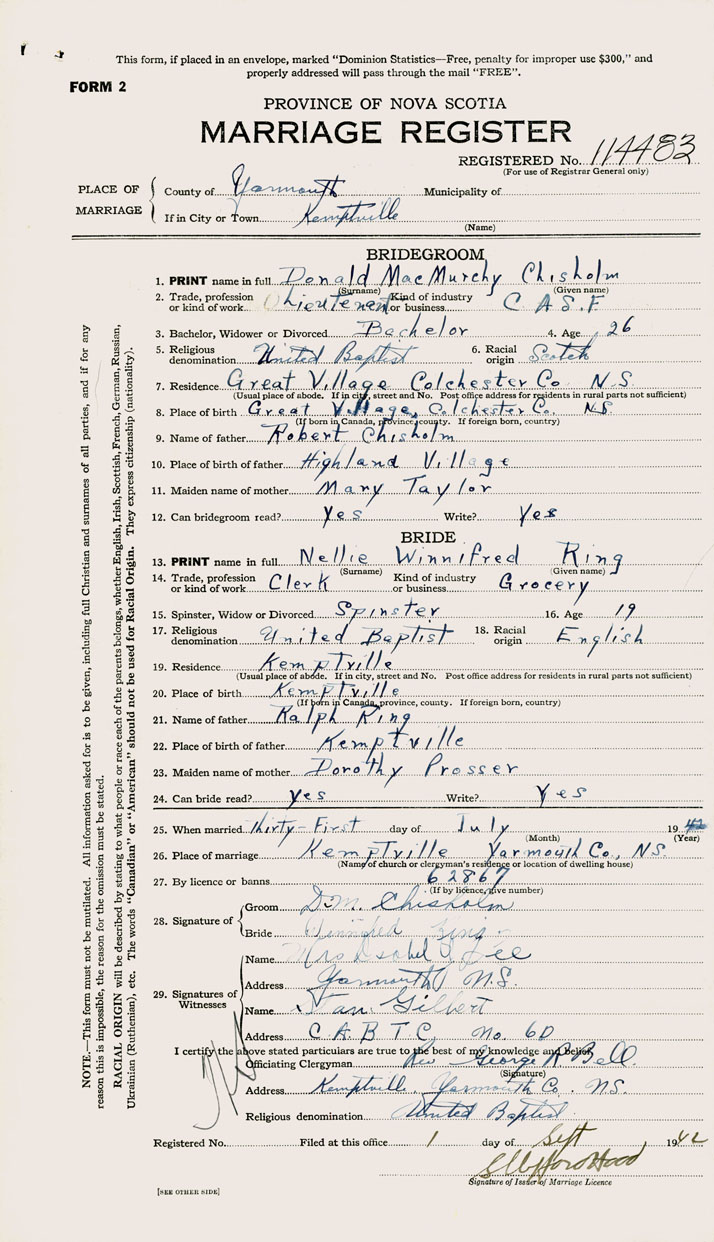 This form, if placed in an envelope, marked "Dominion Statistics—Free, penalty for improper use $300," and
properly addressed will pass through the mail "FREE".
FORM 2
PROVINCE OF NOVA SCOTIA
MARRIAGE REGISTER
REGISTERED No. 114483
(For use of Registrar General only)
PLACE OF MARRIAGE
County of Yarmouth Municipality of
If in City or Town Kemptville
(Name)
BRIDEGROOM
1. PRINT name in full Donald MacMurchy Chisholm
(Surname) (Given name)
2. Trade, profession or kind of work Lieutenant Kind of industry or business C A S F
3. Bachelor, Widower or Divorced Bachelor 4. Age 26
5. Religious denomination United Baptist 6. Racial origin Scotch
7. Residence Great Village Colchester Co N.S.
(Usual place of abode. If in city, street and No. Post office address for residents in rural parts not sufficient)
8. Place of birth Great Village, Colchester Co. N.S.
(If born in Canada, province, county. If foreign born, country)
9. Name of father Robert Chisholm
10. Place of birth of father Highland Village
11. Maiden name of mother Mary Taylor
12. Can bridegroom read? Yes Write? Yes
BRIDE
13. PRINT name in full Nellie Winnifred Ring
(Surname) (Given name)
14. Trade, profession or kind of work Clerk Kind of industry or business Grocery
15. Spinster, Widow or Divorced Spinster 16. Age 19
17. Religious denomination United Baptist 18. Racial origin English
19. Residence Kemptville
(Usual place of abode. If in city, street and No. Post office address for residents in rural parts not sufficient)
20. Place of birth Kemptville
(If born in Canada, province, county. If foreign born, country)
21. Name of father Ralph Ring
22. Place of birth of father Kemptville
23. Maiden name of mother Dorothy Prosser
24. Can bride read? Yes Write? Yes
25. When married Thirty-First day of July 1942
(Month) (Year)
26. Place of marriage Kemptville Yarmouth Co., N.S.
(Name of church or clergyman's residence or location of dwelling house)
27. By licence or banns 62867
(If by licence, give number)
28. Signature of
Groom D. M. Chisholm
Bride Winnifred Ring
29. Signatures of Witnesses
Name Mrs Isabel Lee
Address Yarmouth N.S.
Name Stan Gilbert
Address C A B T C No. 60
I certify the above stated particulars are true to the best of my knowledge and belief
Officiating Clergyman Rev George R Bell
(Signature)
Address Kemptville Yarmouth Co. N.S.
Religious denomination United Baptist
Registered No. Filed at this office 1 day of Sept 1942
Signature of Issuer of Marriage Licence
[SEE OTHER SIDE]
NOTE.—This form must not be mutilated. All information asked for is to be given, including full Christian and surnames of all parties, and if for any
reason this is impossible, the reason for the omission must be stated.
RACIAL ORIGIN will be described by stating to what people or race each of the parents belongs, whether English, Irish, Scottish, French, German, Russian,
Ukrainian (Ruthenian), etc. The words "Canadian" or "American" should not be used for Racial Origin. They express citizenship (nationality).